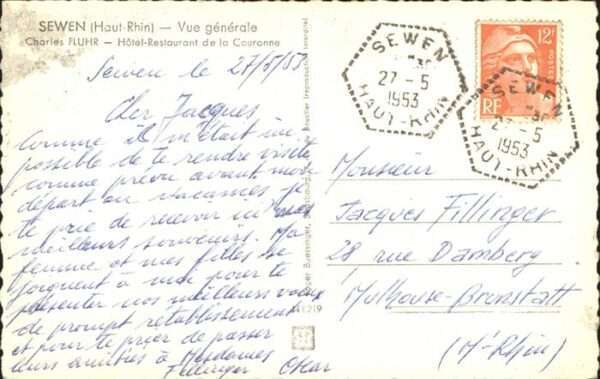 SEWEN (Haut-Rhin) — Vue générale
Charles FLUHR — Hôtel-Restaurant de la Couronne
Sewen le 27/5/53
Cher Jacques
Comme il m'était im-
possible de te rendre visite
comme prévu avant mon
départ au vacances, je
te prie de recevoir ici mes
meilleurs souvenirs. Ma
femme et mes filles se
joignent à moi pour te
présenter nos meilleurs voeux
de prompt rétablissement
et pour te prier de passer
leurs amitiés à Mesdames
Fillinger Oscar
SEWEN
27-5
1953
HAUT-RHIN
12F
POSTES
RF
SEWEN
27-5
1953
HAUT-RHIN
Monsieur
Jacques Fillinger
28 rue Damberg
Mulhouse-Brunstatt
(Ht Rhin)